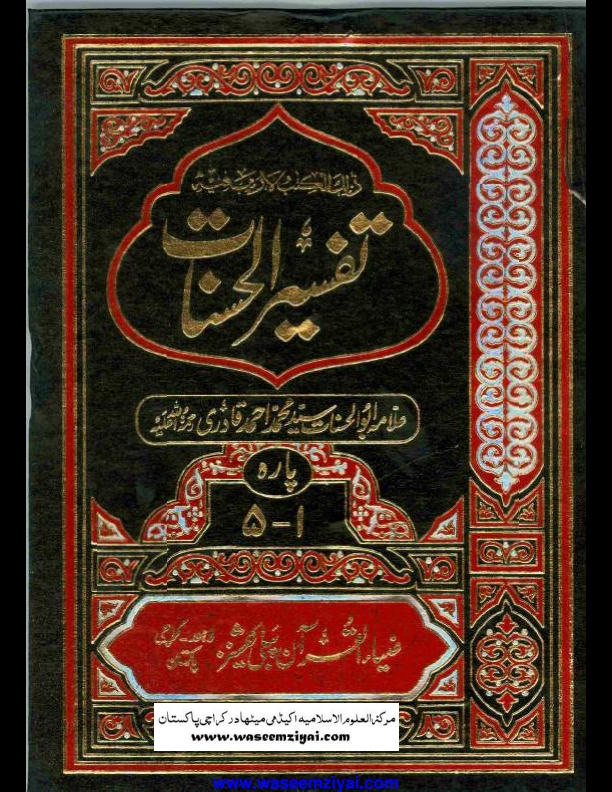 ذٰلِكَ الْكِتٰبُ لَا رَيْبَ فِيْهِ
تفسیر الحسنات
علامہ ابوالحسنات سید محمد احمد قادری رحمۃ اللہ علیہ
پارہ
۱-۵
ضیاء القرآن پبلی کیشنز لاہور - کراچی
پاکستان
مرکز العلوم الاسلامیہ اکیڈمی میٹھادر کراچی پاکستان
www.waseemziyai.com
www.waseemziyai.com